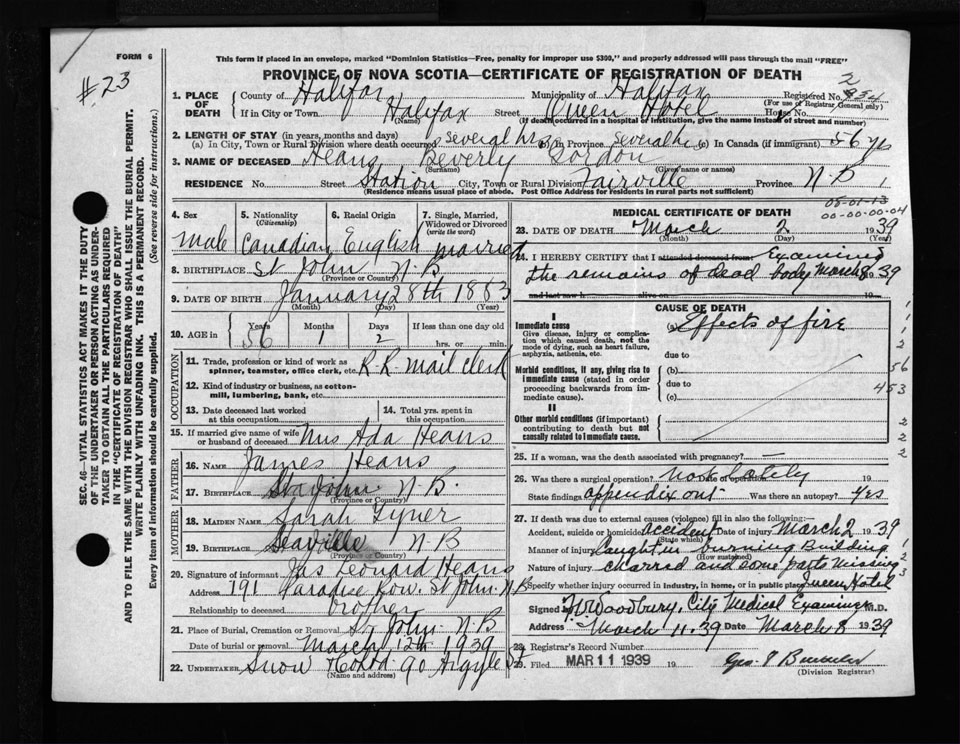 FORM 6
#23
This form if placed in an envelope, marked "Dominion Statistics—Free, penalty for improper use $300," and properly addressed will pass through the mail "FREE"
PROVINCE OF NOVA SCOTIA—CERTIFICATE OF REGISTRATION OF DEATH
SEC. 46—VITAL STATISTICS ACT MAKES IT THE DUTY
OF THE UNDERTAKER OR PERSON ACTING AS UNDER-
TAKER TO OBTAIN ALL THE PARTICULARS REQUIRED
IN THE "CERTIFICATE OF REGISTRATION OF DEATH"
AND TO FILE THE SAME WITH THE DIVISION REGISTRAR WHO SHALL ISSUE THE BURIAL PERMIT.
WRITE PLAINLY WITH UNFADING INK. THIS IS A PERMANENT RECORD.
Every item of information should be carefully supplied. (See reverse side for instructions.)
1. PLACE OF DEATH County of Halifax Municipality of Halifax Registered No. 2 834
(For use of Registrar General only)
If in City or Town Halifax Street Queen Hotel House No.
(Name) (If death occurred in a hospital of institution, give the name instead of street and number)
2. LENGTH OF STAY (in years, months and days)
(a) In City, Town or Rural Division where death occurred several hrs (b) In Province several hrs (c) In Canada (if immigrant) 56 yrs
3. NAME OF DECEASED Heans Beverly Gordon
(Surname) (Given name or names)
RESIDENCE No. Street Station City, Town or Rural Division Fairville Province N B 1
(Residence means usual place of abode. Post Office Address for residents in rural parts not sufficient)
4. Sex 5. Nationality (Citizenship) 6. Racial Origin 7. Single, Married, Widowed or Divorced (write the word)
male Canadian English married
8. BIRTHPLACE St John N.B.
(Province or Country)
9. DATE OF BIRTH January 28th 1883
(Month) (Day) (Year)
10. AGE in Years Months Days If less than one day old
56 1 2 hrs. or min.
OCCUPATION
11. Trade, profession or kind of work as spinner, teamster, office clerk, etc. R.R. mail clerk
12. Kind of industry or business, as cotton-mill, lumbering, bank, etc.
13. Date deceased last worked at this occupation 14. Total yrs. spent in this occupation
15. If married give name of wife or husband of deceased Mrs Ada Heans
FATHER
16. NAME James Heans
17. BIRTHPLACE St John N.B.
(Province or Country)
MOTHER
18. MAIDEN NAME Sarah Tyner
19. BIRTHPLACE Seaville N B
(Province or Country)
20. Signature of informant Jas Leonard Heans
Address 191 Paradise Row. St John. N.B
Relationship to deceased brother
21. Place of Burial, Cremation or Removal St, John. N.B
Date of burial or removal March 12th 1939
22. UNDERTAKER Snow & Co Ltd 90 Argyle St
(Name and address)
MEDICAL CERTIFICATE OF DEATH
00-01-13
00-00-00-04
23. DATE OF DEATH March 2 1939
(Month) (Day) (Year)
24. I HEREBY CERTIFY that I attended deceased from Examined
the remains of dead body March 8 1939
and last saw h alive on 19
CAUSE OF DEATH
I
Immediate cause (a) Effects of fire
Give disease, injury or complication which caused death, not the mode of dying, such as heart failure, asphyxia, asthenia, etc.
due to
Morbid conditions, if any, giving rise to immediate cause (stated in order proceeding backwards from immediate cause). (b)
due to
(c)
56
453
II
Other morbid conditions (if important) contributing to death but not causally related to immediate cause.
25. If a woman, was the death associated with pregnancy?
26. Was there a surgical operation? Date of operation not lately
State findings appendix out Was there an autopsy? Yes
27. If death was due to external causes (violence) fill in also the following:
Accident, suicide or homicide accident Date of injury March 2 1939
(State which)
Manner of injury Caught in burning Building
(How sustained)
Nature of injury charred and some parts missing
Specify whether injury occurred in industry, in home, or in public place Queen Hotel
Signed H. Woodbury, City Medical Examiner M.D.
Address March 11.39 Date March 8 1939
28. Registrar's Record Number
29. Filed MAR 11 1939 19
(Division Registrar)